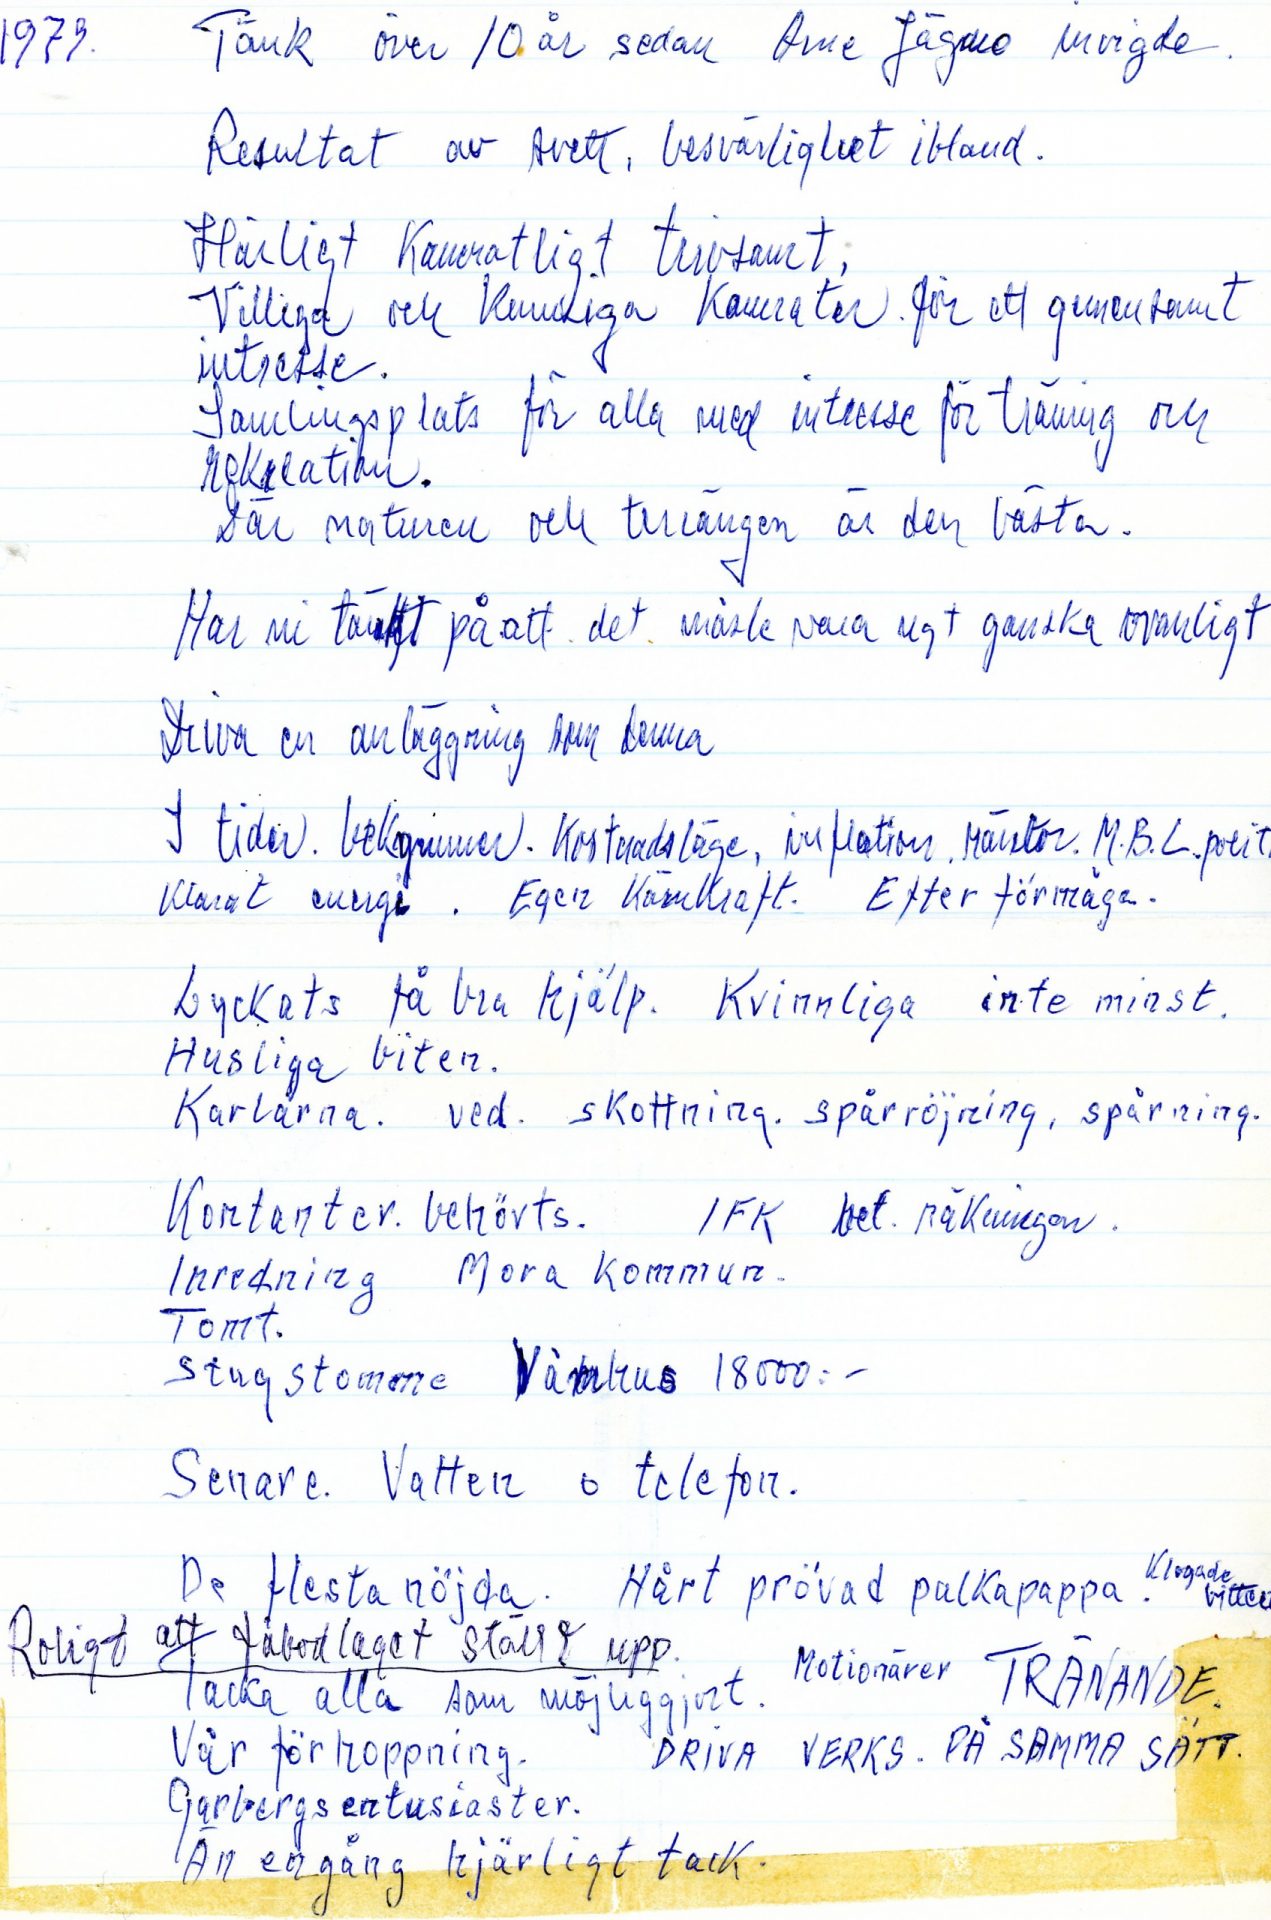 1979. Tänk över 10 år sedan Arne Jägmo invigde.
Resultat av svett, besvärlighet ibland.
Härligt Kamratligt trivsamt,
Villiga och Kunniga Kamrater för ett gemensamt
intresse.
Samlingsplats för alla med intresse för träning och
rekreation.
Där naturen och terrängen är den bästa.
Har ni tänkt på att det måste vara ngt ganska ovanligt
Driva en anläggning som denna
I tider. bekymmer. Kostnadsläge, inflation, räntor. M.B.L.
Klarat energi. Egen Kärnkraft. Efter förmåga.
Lyckats få bra hjälp. Kvinnliga inte minst.
Husliga biten.
Karlarna. ved. skottning. spårröjning, spårning.
Kontanter. behövts. IFK bet. räkningen.
Inredning Mora Kommun.
Tomt.
Stugstomme Våmhus 18000:-
Senare. Vatten o telefon.
De flesta nöjda. Hårt prövad pulkapappa. Klagade bittert
Roligt att fäbodlaget ställt upp.
Tacka alla som möjliggjort. Motionärer TRÄNANDE.
Vår förhoppning. DRIVA VERKS. PÅ SAMMA SÄTT.
Garbergsentusiaster.
Än engång hjärligt tack.